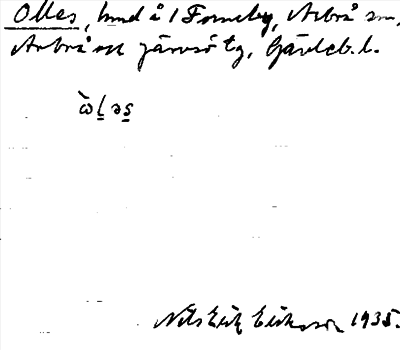 Olles, hmd å 1 Forneby, Arbrå sn,
Arbrå och Järvsö tg, Gävleb. l.
ὼl̲əs̲
Nils Erik Eriksson 1935.